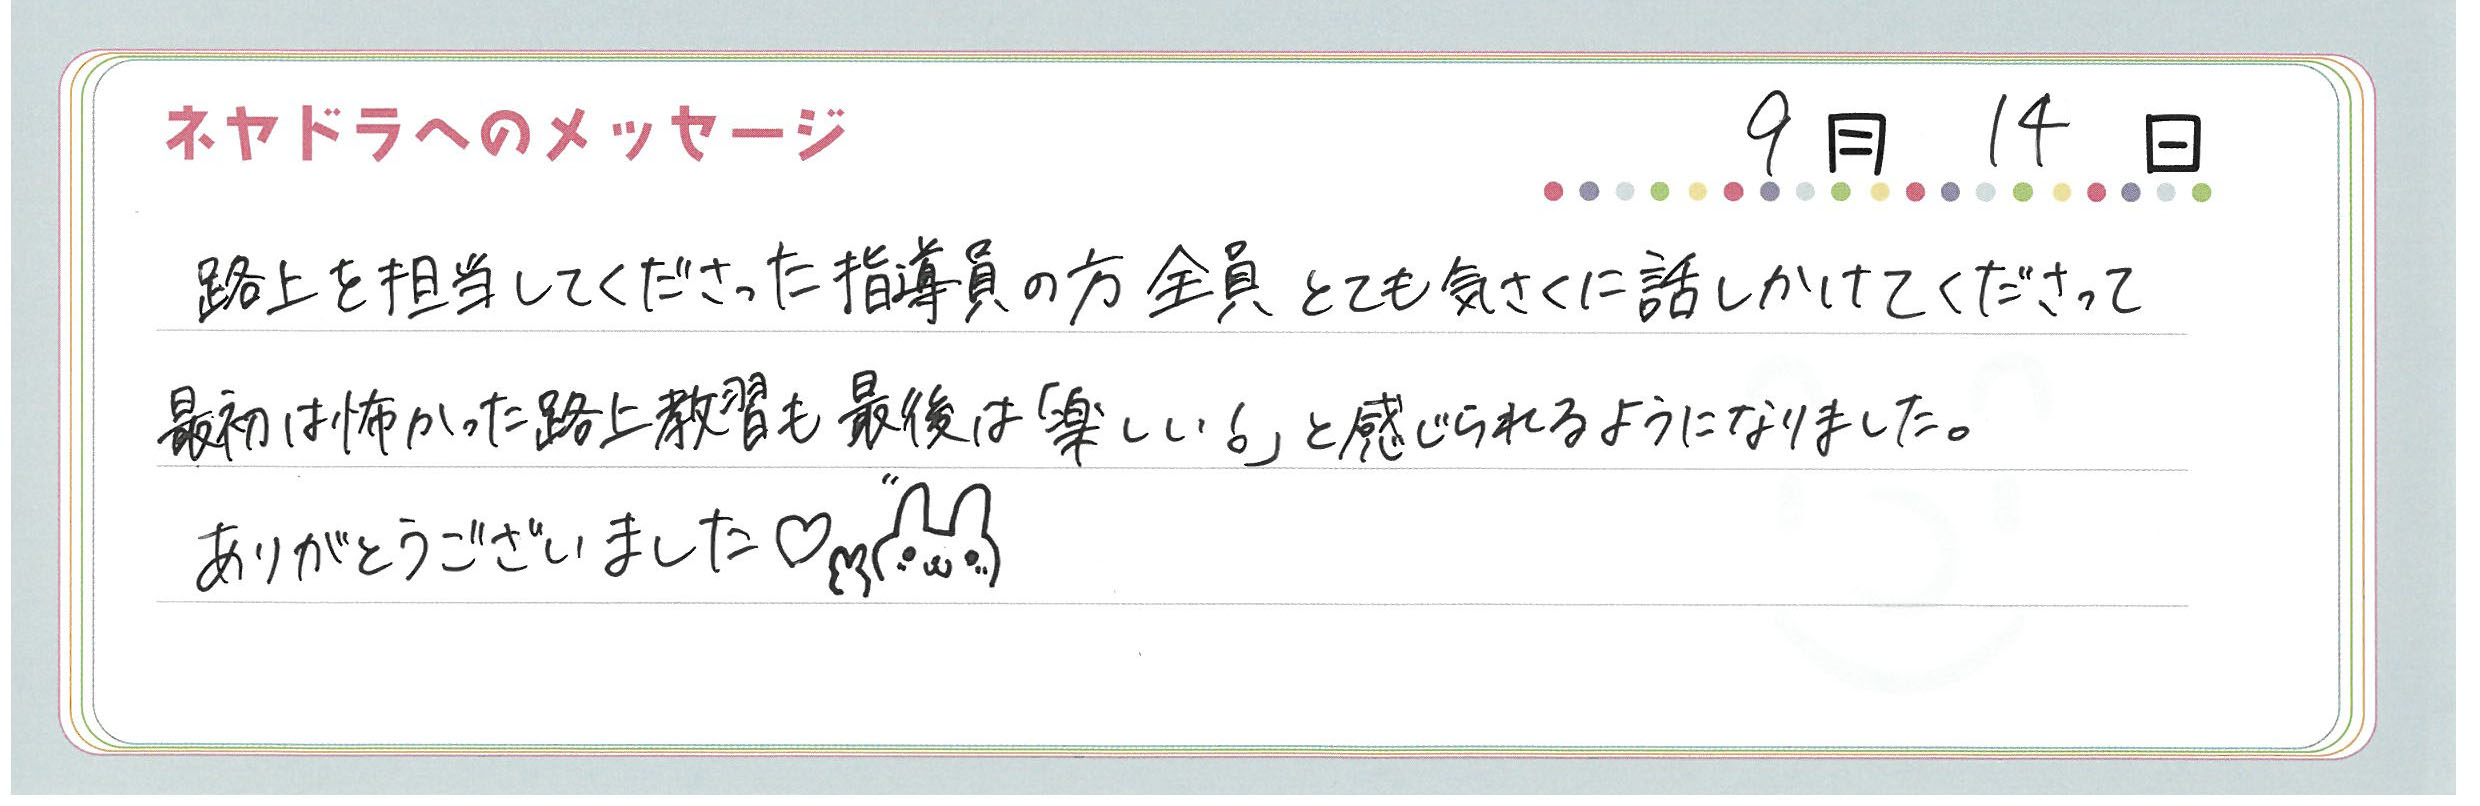 ネヤドラへのメッセージ
9月 14日
路上を担当してくださった指導員の方全員とても気さくに話しかけてくださって
最初は怖かった路上教習も最後は「楽しい!」と感じられるようになりました。
ありがとうございました♡